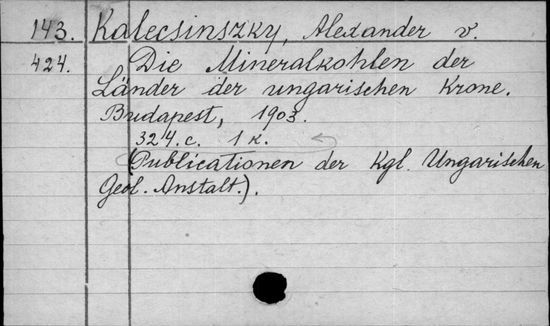 143. Kalecsinszky, Alexander v.
424. Die Mineralkohlen der
Länder der ungarischen Krone.
Budapest, 1903.
324. c. 1 K.
(Publicationen der Kgl. Ungarischen
Geol. Anstalt.).